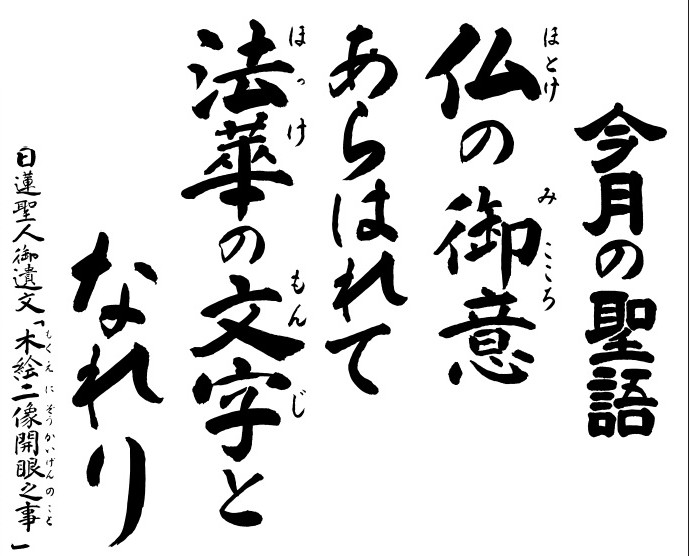 今月の聖語
仏の御意
ほとけ
みこころ
あらはれて
法華の文字と
ほっけ
もんじ
なれり
日蓮聖人御遺文「木絵二像開眼之事」
もくえにぞうかいげんのこと